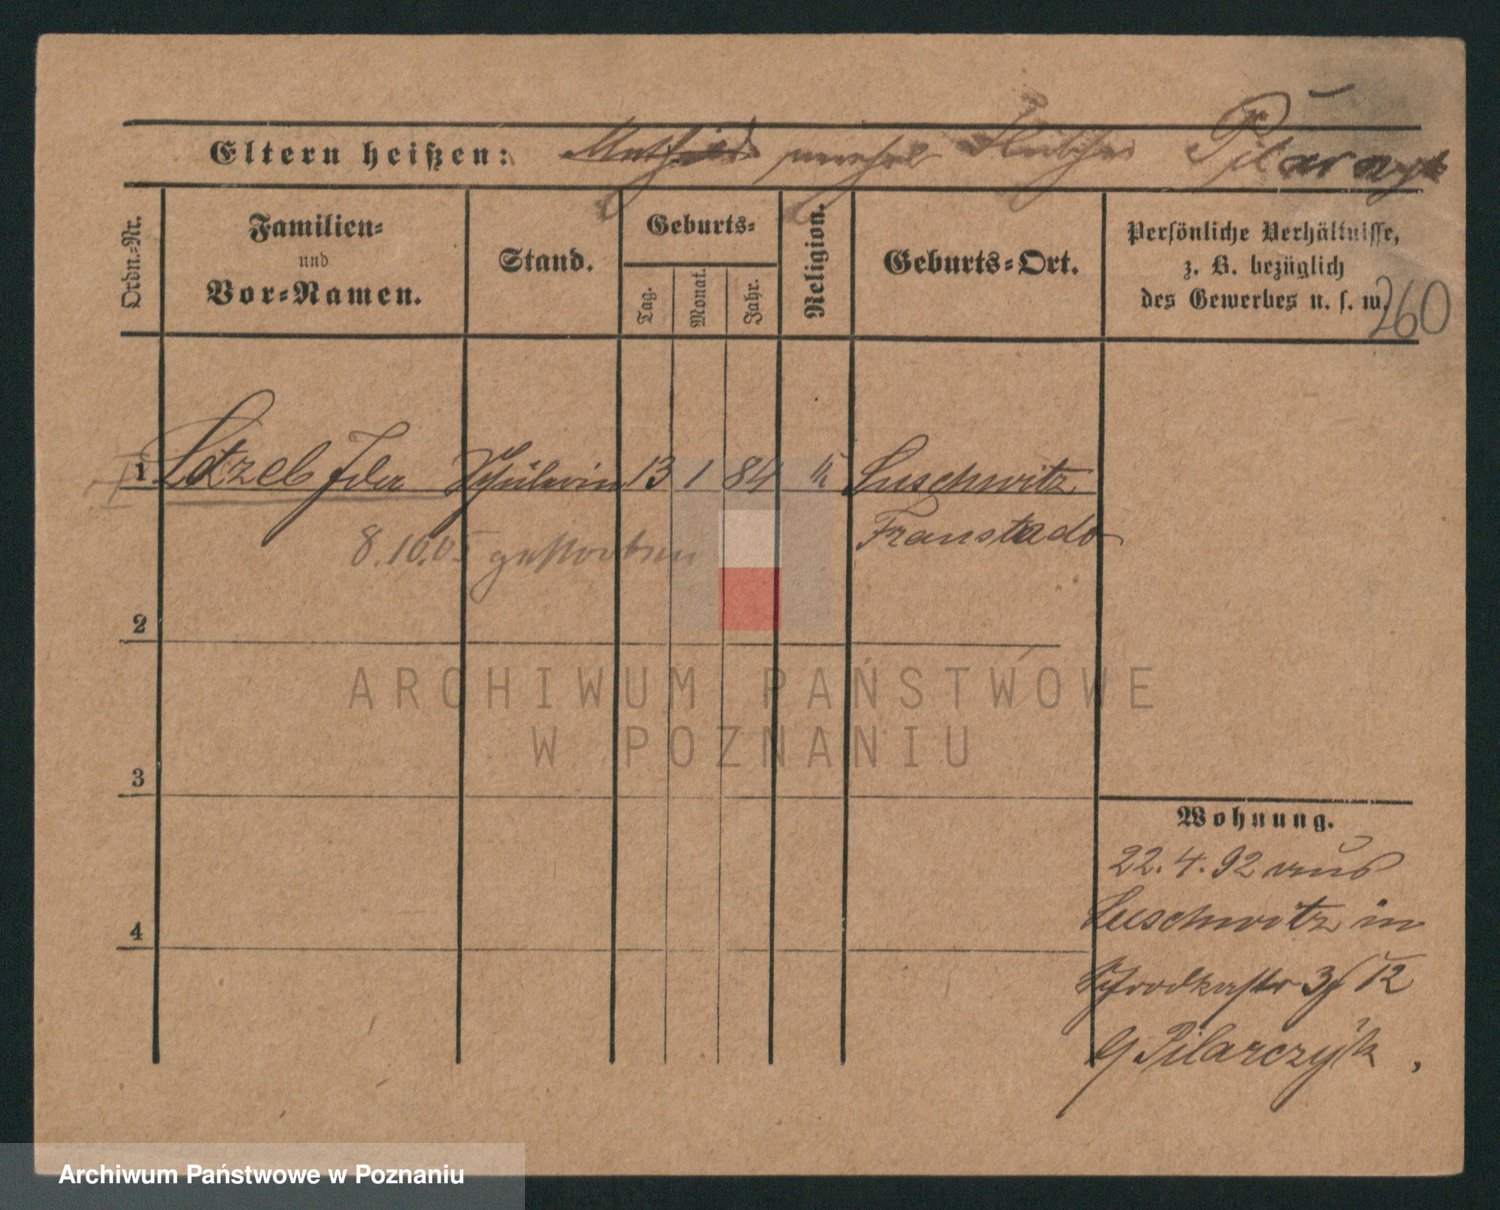 Eltern heißen: Pilarczyk
Ordn.-Nr.
Familien-
und
Vor-Namen.
Stand.
Geburts-
Tag.
Monat.
Jahr.
Religion.
Geburts-Ort.
Persönliche Verhältnisse,
z. B. bezüglich
des Gewerbes u. s. w.
260
1 Letzel Ida Schülerin 13 1 84 k Luschwitz
Fraustadt
8.10.05 gestorben
2
ARCHIWUM PAŃSTWOWE
W POZNANIU
3
Wohnung.
22.4.92 aus
Luschwitz in
Schrodkastr 3/12
4
Pilarczyk
Archiwum Państwowe w Poznaniu